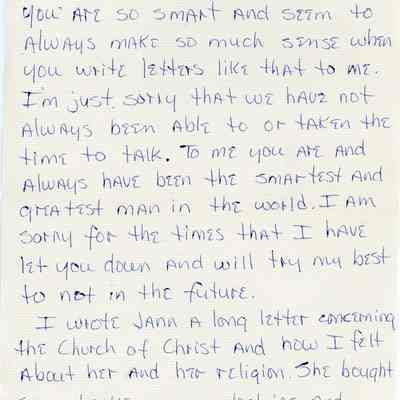 you are so smart and seem to
always make so much sense when
you write letters like that to me.
I'm just sorry that we have not
always been able to or taken the
time to talk. To me you are and
always have been the smartest and
greatest man in the world. I am
sorry for the times that I have
let you down and will try my best
to not in the future.
I wrote Jann a long letter concerning
the Church of Christ and how I felt
about her and her religion. She bought